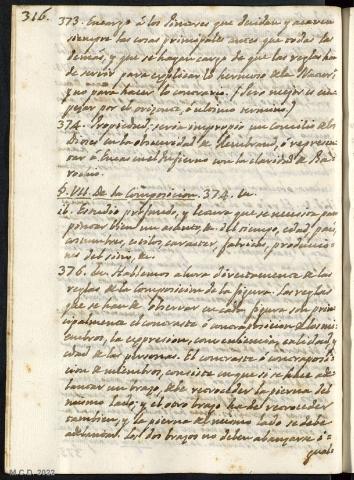 316.
373. Encargo á los Pintores que decidan y acaven
siempre las cosas principales antes que todas las
demás, y que se hagan cargo de que las reglas han
de servir para explicar lo hermoso de la Natur.ª
y no para hacer lo contrario. (Pero mejor es em-
pezar por el
374. Propiedad: sería impropio un Concilio de los
Dioses en la obscuridad de Rembrand, ó represen-
tar á Eneas en el Infierno con la claridad de Ba-
rocio.
§. VII. De la Composicion. 374.
ib. Estudio profundo, y lectura que se necesita para
pintar bien un asunto, &. del tiempo, edad, país,
costumbres, caracter, fabricas, produccio-
nes del sitio, &.
376. Hablemos ahora directamente de las
reglas de la composicion de la figura. Las reglas
que se han de observar en cada figura son prin-
cipalmente el contraste ó contraposicion de los mi-
embros, la expresion, conveniencia, en la edad y
edad de las personas. El contraste ó contraposi-
cion de miembros, consiste en que si se hace ade-
lantar un brazo, debe retroceder la pierna del
mismo lado; y el otro brazo ha de retroceder
tambien, y la pierna del mismo lado se debe
adelantar. Los dos brazos no deben abanzarse i-
gual-
M.C.D. 2022